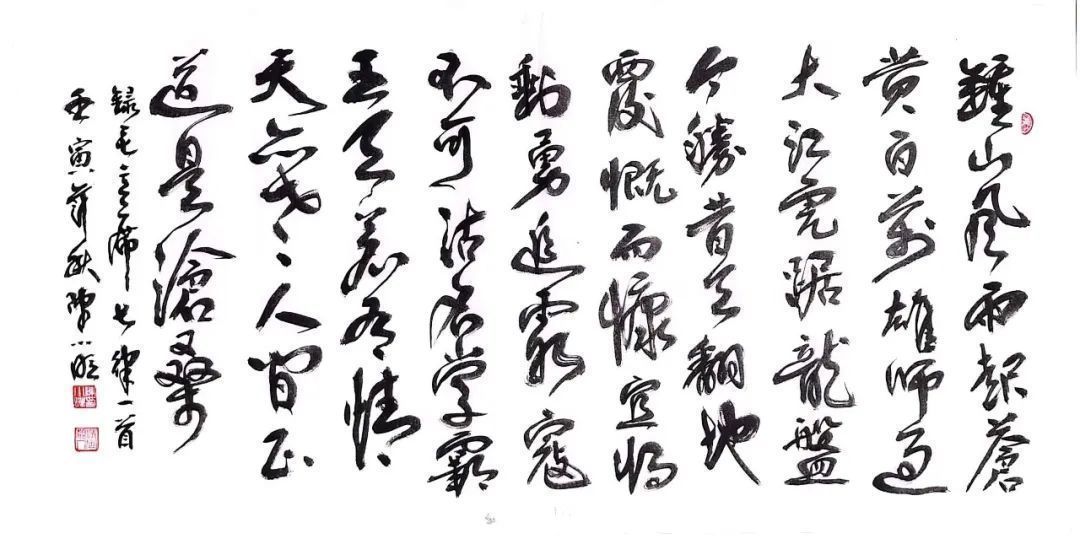 鍾山風雨起蒼
黄百萬雄師過
大江虎踞龍盤
今勝昔天翻地
覆慨而慷宜将
剩勇追窮寇
不可沽名學霸
王天若有情
天亦老人間正
道是滄桑
録毛主席七律一首
壬寅秋陳小